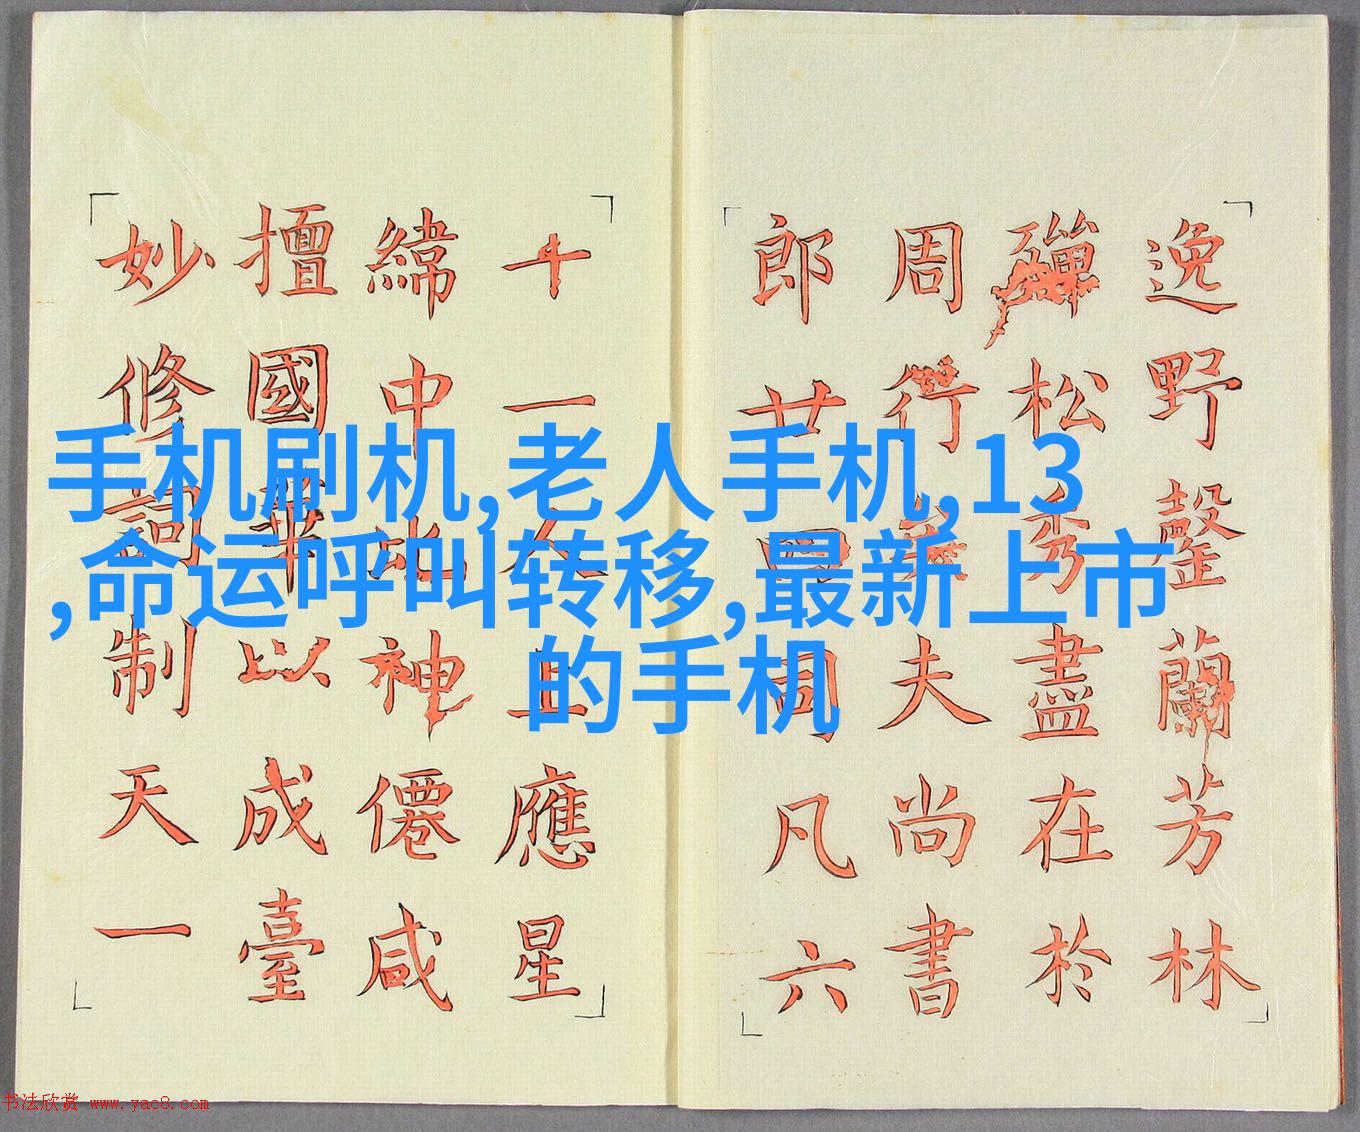 手机刷机,老人手机,13
,命运呼叫转移,最新上市
的手机
逸野罄蘭芳林
殫松秀盡在於
周行矣夫尚書
郎廿四周凡六
十一人上應星
緯中比神僊咸
擅國華以成臺
妙修詞制天一
书法欣赏 www.yac8.com